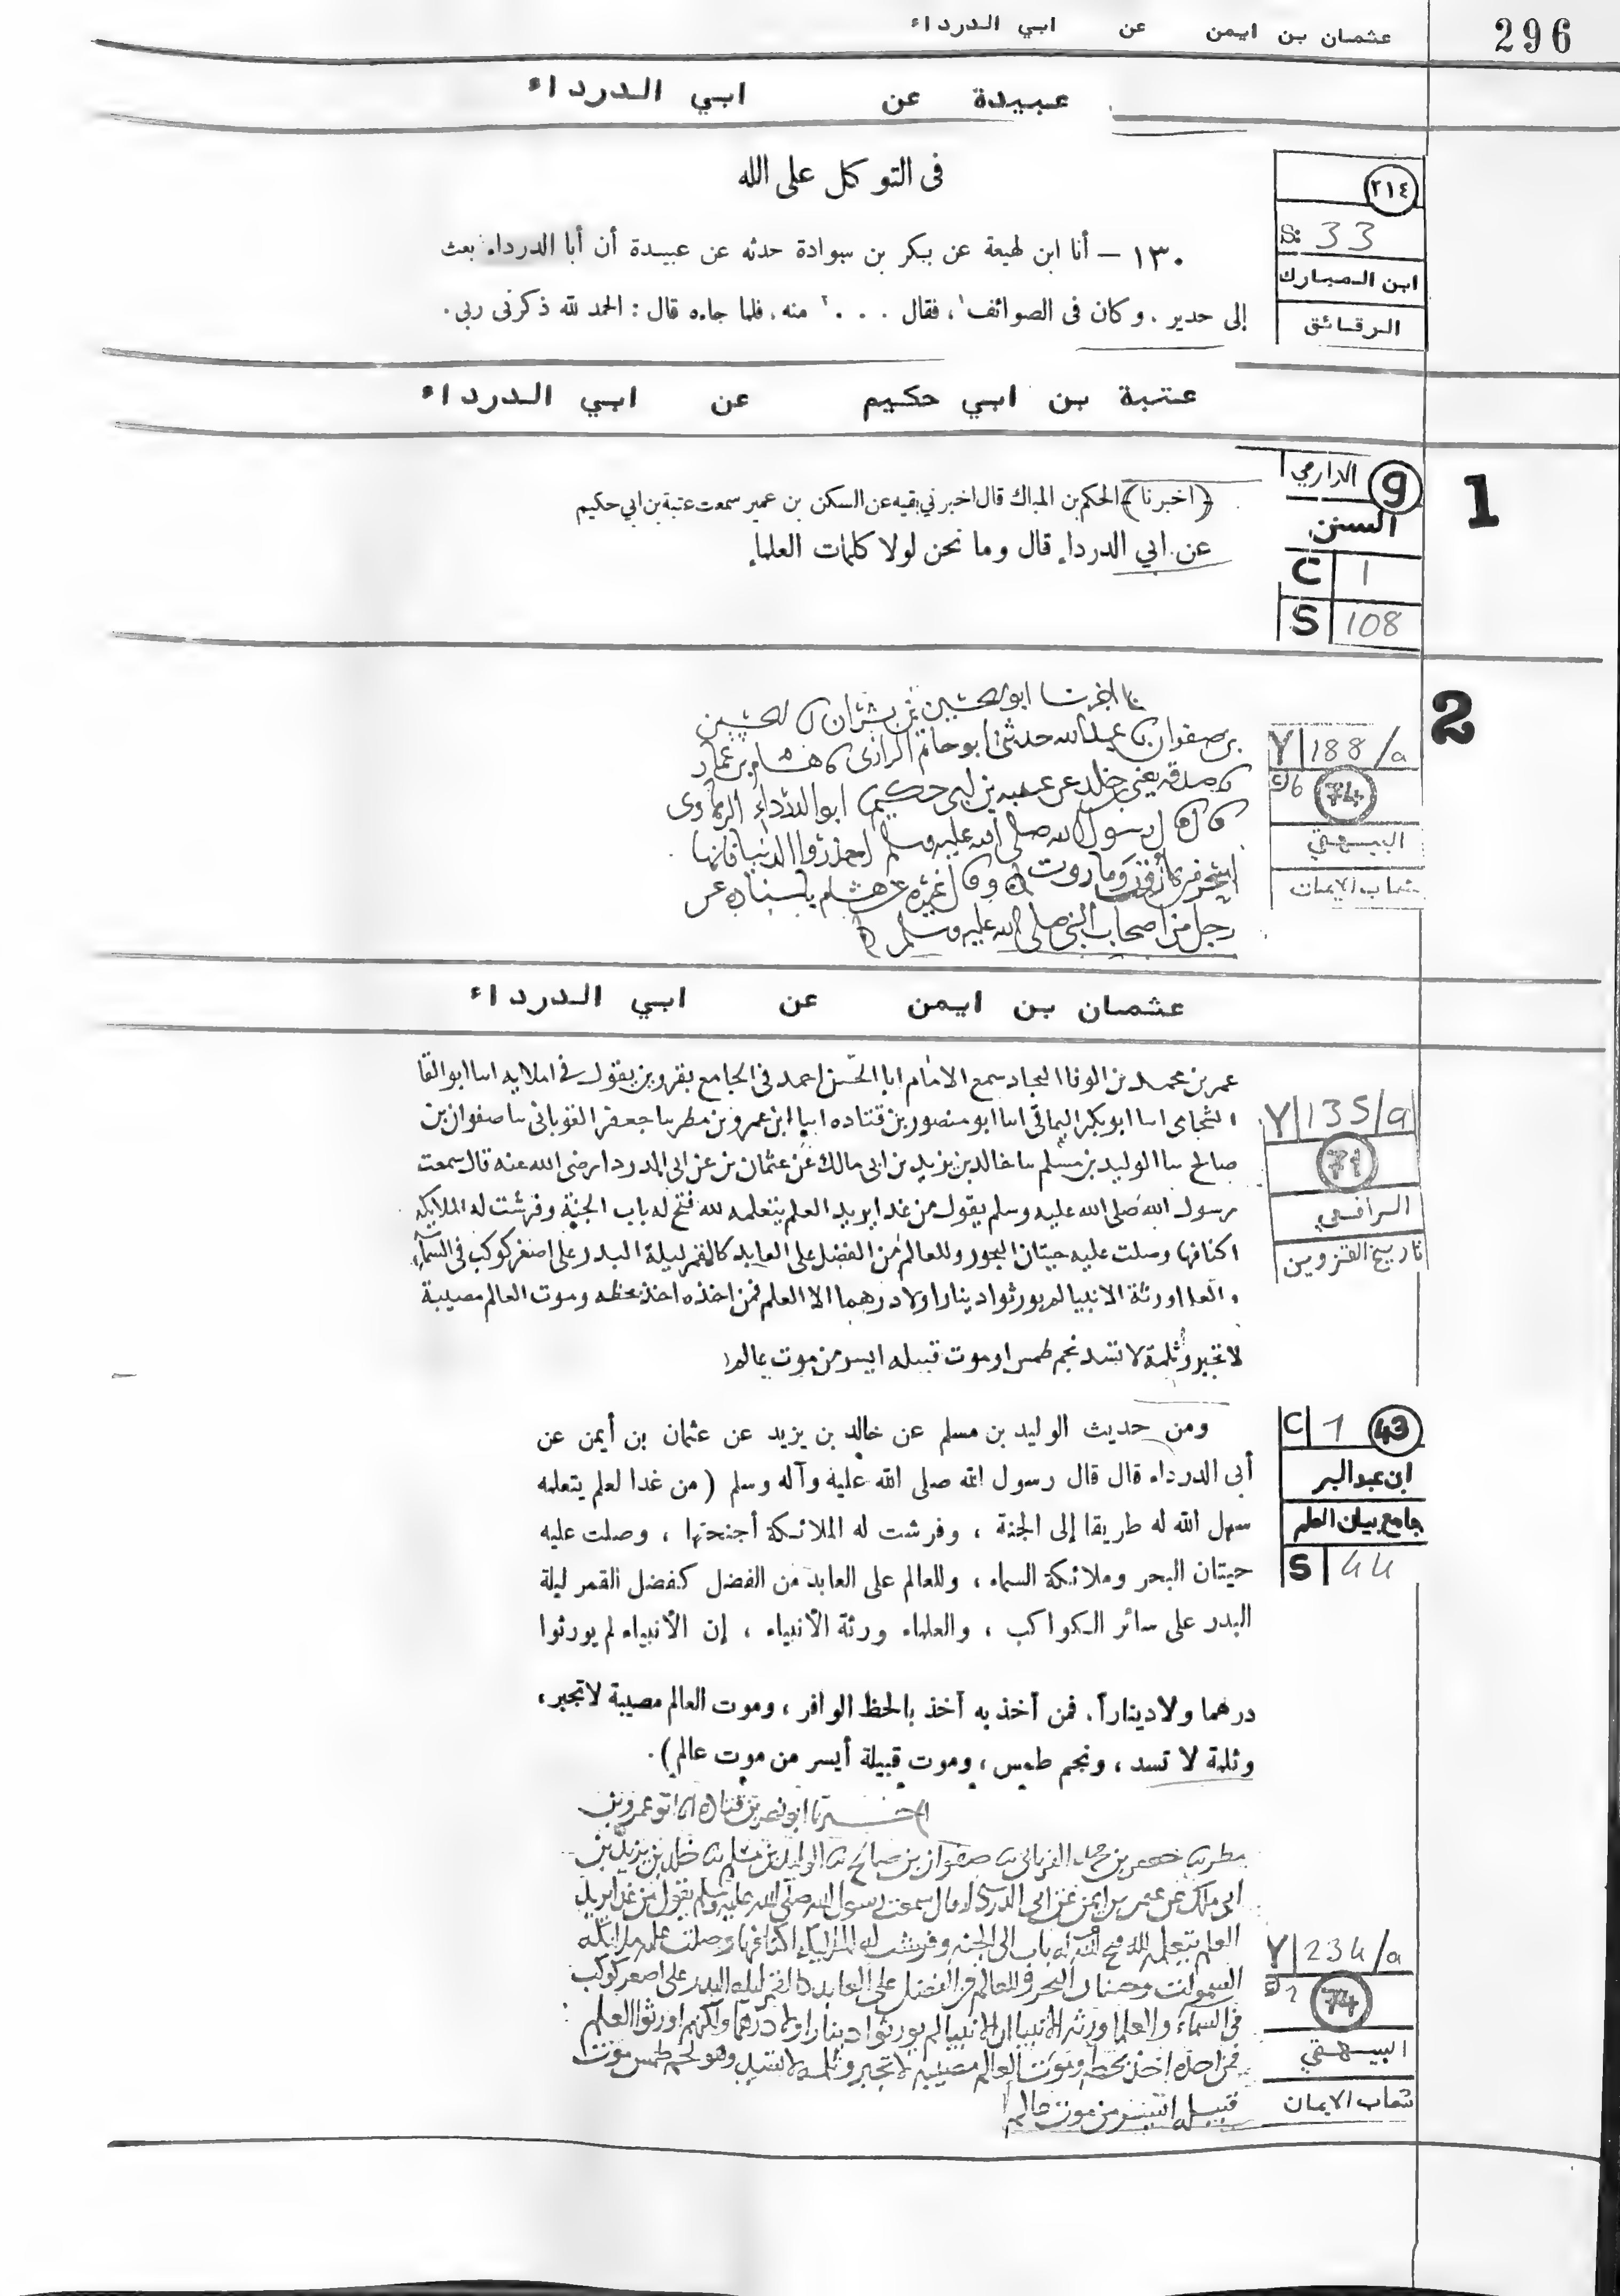 296
عثمان بن ايمن عن ابي الدرداء
عبيدة عن ابي الدرداء
٢١٤
S: 33
ابن المبارك
الرقائق
فى التوكل على الله
١٣٠ — أنا ابن لهيعة عن بكر بن سوادة حدثه عن عبيدة أن أبا الدرداء بعث
إلى حدير، وكان فى الصوائف١، فقال . . .٢ منه، فلما جاءه قال : الحمد لله ذكرنى ربى.
عتبة بن ابي حكيم عن ابي الدرداء
1
9 الدارمي
السنن
C 1
S 108
(اخبرنا) الحكم بن المباك قال اخبرني بقيه عن السكن بن عمير سمعت عتبة بن ابي حكيم
عن ابي الدرداء قال وما نحن لولا كلمات العلماء
2
Y 188/a
c 6 74
البيهقي
شعاب الايمان
اخبرنا ابو الحسين بن بشران الحسين
بن صفوان عبد الله حدثني ابو حاتم الرازى هشام بن عمار
صدقه يعنى بن خلد عن عتبه بن ابى حكيم ابو الدرداء الرهاوى
قال قال رسول الله صلى الله عليه وسلم احذروا الدنيا فانها
اسحر من هاروت وماروت وقال غيره عن هشام باسناده عن
رجل من اصحاب النبي صلى الله عليه وسلم
عثمان بن ايمن عن ابي الدرداء
Y 135/a
71
الرافعي
تاريخ القزوين
عمر بن محمد بن الوفا النجاد سمع الامام ابا الحسن احمد فى الجامع بقزوين يقول فى املايه اسا ابو القا
الشحامى اسا ابو بكر اسا ابو منصور بن قتاده ابنا ابن عمرو بن مطر سا جعفر سا صفوان بن
صالح سا الوليد بن مسلم سا خالد بن يزيد بن ابى مالك عن عثمان بن عن ابى الدردا رضى الله عنه قال سمعت
رسول الله صلى الله عليه وسلم يقول من غدا يريد العلم يتعلمه لله فتح له باب الجنة وفرشت له الملايكه
اكنافها وصلت عليه حيتان البحور وللعالم من الفضل على العابد كالقمر ليلة البدر على اصغر كوكب فى السماء
والعلما ورثة الانبيا لم يورثوا دينارا ولا درهما الا العلم فمن اخذه اخذ بحظه وموت العالم مصيبة
لا تجبر وثلمة لا تسد نجم طمس او موت قبيله ايسر من موت عالم
C 1 43
ابن عبد البر
جامع بيان العلم
S 44
ومن حديث الوليد بن مسلم عن خالد بن يزيد عن عثمان بن أيمن عن
أبى الدرداء قال قال رسول الله صلى الله عليه وآله وسلم ( من غدا لعلم يتعلمه
سهل الله له طريقا إلى الجنة ، وفرشت له الملائكة أجنحتها ، وصلت عليه
حيتان البحر وملائكة السماء ، وللعالم على العابد من الفضل كفضل القمر ليلة
البدر على سائر الكواكب ، والعلماء ورثة الأنبياء ، إن الأنبياء لم يورثوا
درهما ولا ديناراً. فمن أخذ به أخذ بالحظ الوافر ، وموت العالم مصيبة لا تجبر،
وثلمة لا تسد ، ونجم طمس ، وموت قبيلة أيسر من موت عالم).
اخبرنا ابو نصر بن قتاده ابو عمرو بن
مطر جعفر بن محمد الفريابى صفوان بن صالح الوليد بن مسلم خلد بن يزيد بن
ابى ملك عن عثمن بن ايمن عن ابى الدردا قال سمعت رسول الله صلى الله عليه وسلم يقول من غدا يريد
العلم يتعلمه لله فتح الله له باب الى الجنه وفرشت له الملايكه اكنافها وصلت عليه ملايكه
السموات وحيتان البحر وللعالم من الفضل على العابد كالقمر ليله البدر على اصغر كوكب
فى السماء والعلما ورثه الانبيا ان الانبيا لم يورثوا دينارا ولا درهما ولكنهم اورثوا العلم
فمن اخذه اخذ بحظه وموت العالم مصيبه لا تجبر وثلمه لا تسد وهو نجم طمس موت
قبيله ايسر من موت عالم
Y 234/a
74
البيهقي
شعاب الايمان